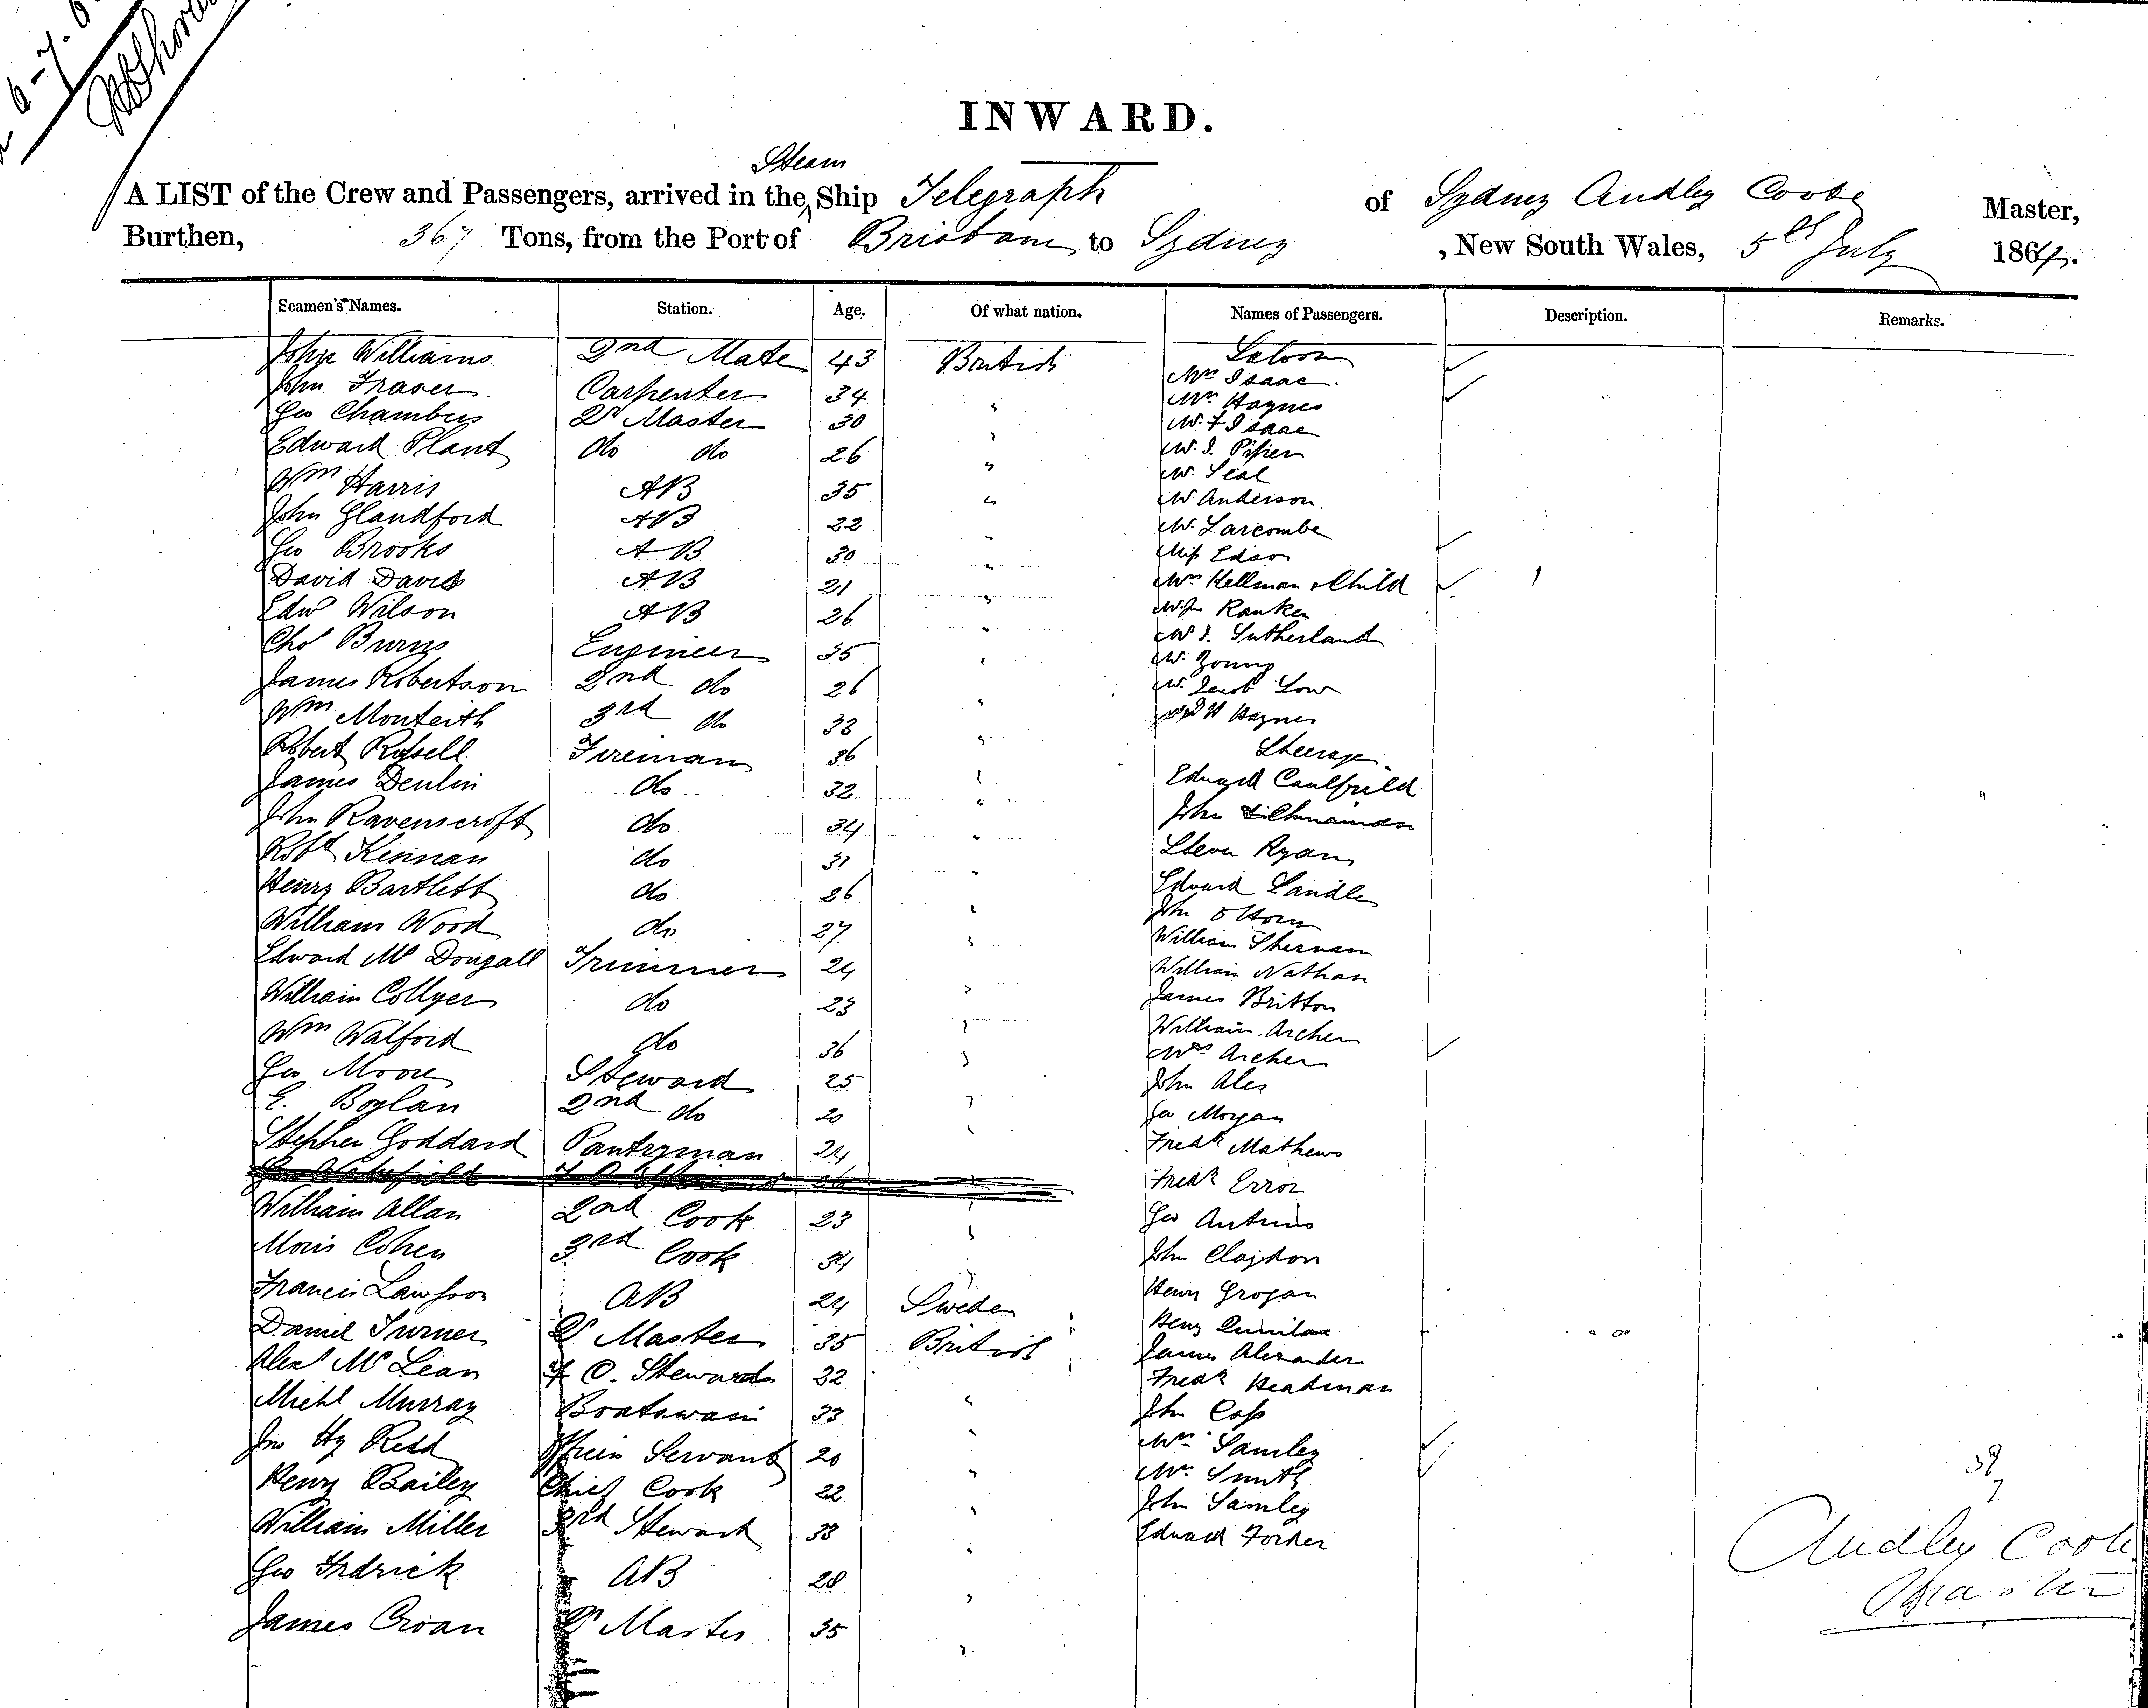 6-7.6
INWARD.
Steam
A LIST of the Crew and Passengers, arrived in the Ship Telegraph of Sydney Audley Coote Master,
Burthen, 367 Tons, from the Port of Brisbane to Sydney , New South Wales, 5th July 1864.
Seamen's Names. Station. Age. Of what nation. Names of Passengers. Description. Remarks.
John Williams 2nd Mate 43 British Saloon
John Fraser Carpenter 34 " Mrs Isaac
Geo Chambers Qr Master 30 " Mrs Haynes
Edward Plant do do 26 " Mr F Isaac
Wm Harris AB 35 " Mr Seal
John Glandford AB 22 " Mr Anderson
Geo Brooks AB 30 " Mr Larcombe
David Davis AB 21 " Miss
Edw Wilson AB 26 " Mrs Hellman & Child
Chs Burns Engineer 35 " Ranken
James Robertson 2nd do 26 " Sutherland
Wm Monteith 3rd do 33 " Mr Young
Robert Russell Fireman 36 " Mr Jacob Low
James Denlin do 32 " Haynes
John Ravenscroft do 34 " Steerage
Robt Kinnan do 31 " Edward Caulfield
Henry Bartlett do 26 " John
William Wood do 27 " Ryan
Edward Mc Dougall Trimmer 24 " Edward Landle
William Collyer do 23 " John
Wm Walford do 36 " William Sherman
Geo Moore Steward 25 " William Nathan
E. Boylan 2nd do 20 " James Britton
Stephen Goddard Pantryman 24 " William Archer
Mrs Archer
William Allan 2nd Cook 23 " John Ales
Moris Cohen 3rd Cook 34 " Geo Morgan
Francis Lawson AB 24 Sweden Fredk Mathews
Daniel Turner Qr Master 35 British Fredk Error
Alexr Mc Lean F C. Steward 32 " Geo
Michl Murray Boatswain 33 " John Claydon
Jno Hy Redd Servant 20 " Henry Grogan
Henry Bailey Chief Cook 22 " Henry Quinlan
William Miller 3rd Steward 38 " James Alexander
Geo Fredrick AB 28 " Fredk Headman
James Croan Qr Master 35 " John Coss
Mrs Samley
Mrs Smith
John Samley
Edward
Audley Coote
Master